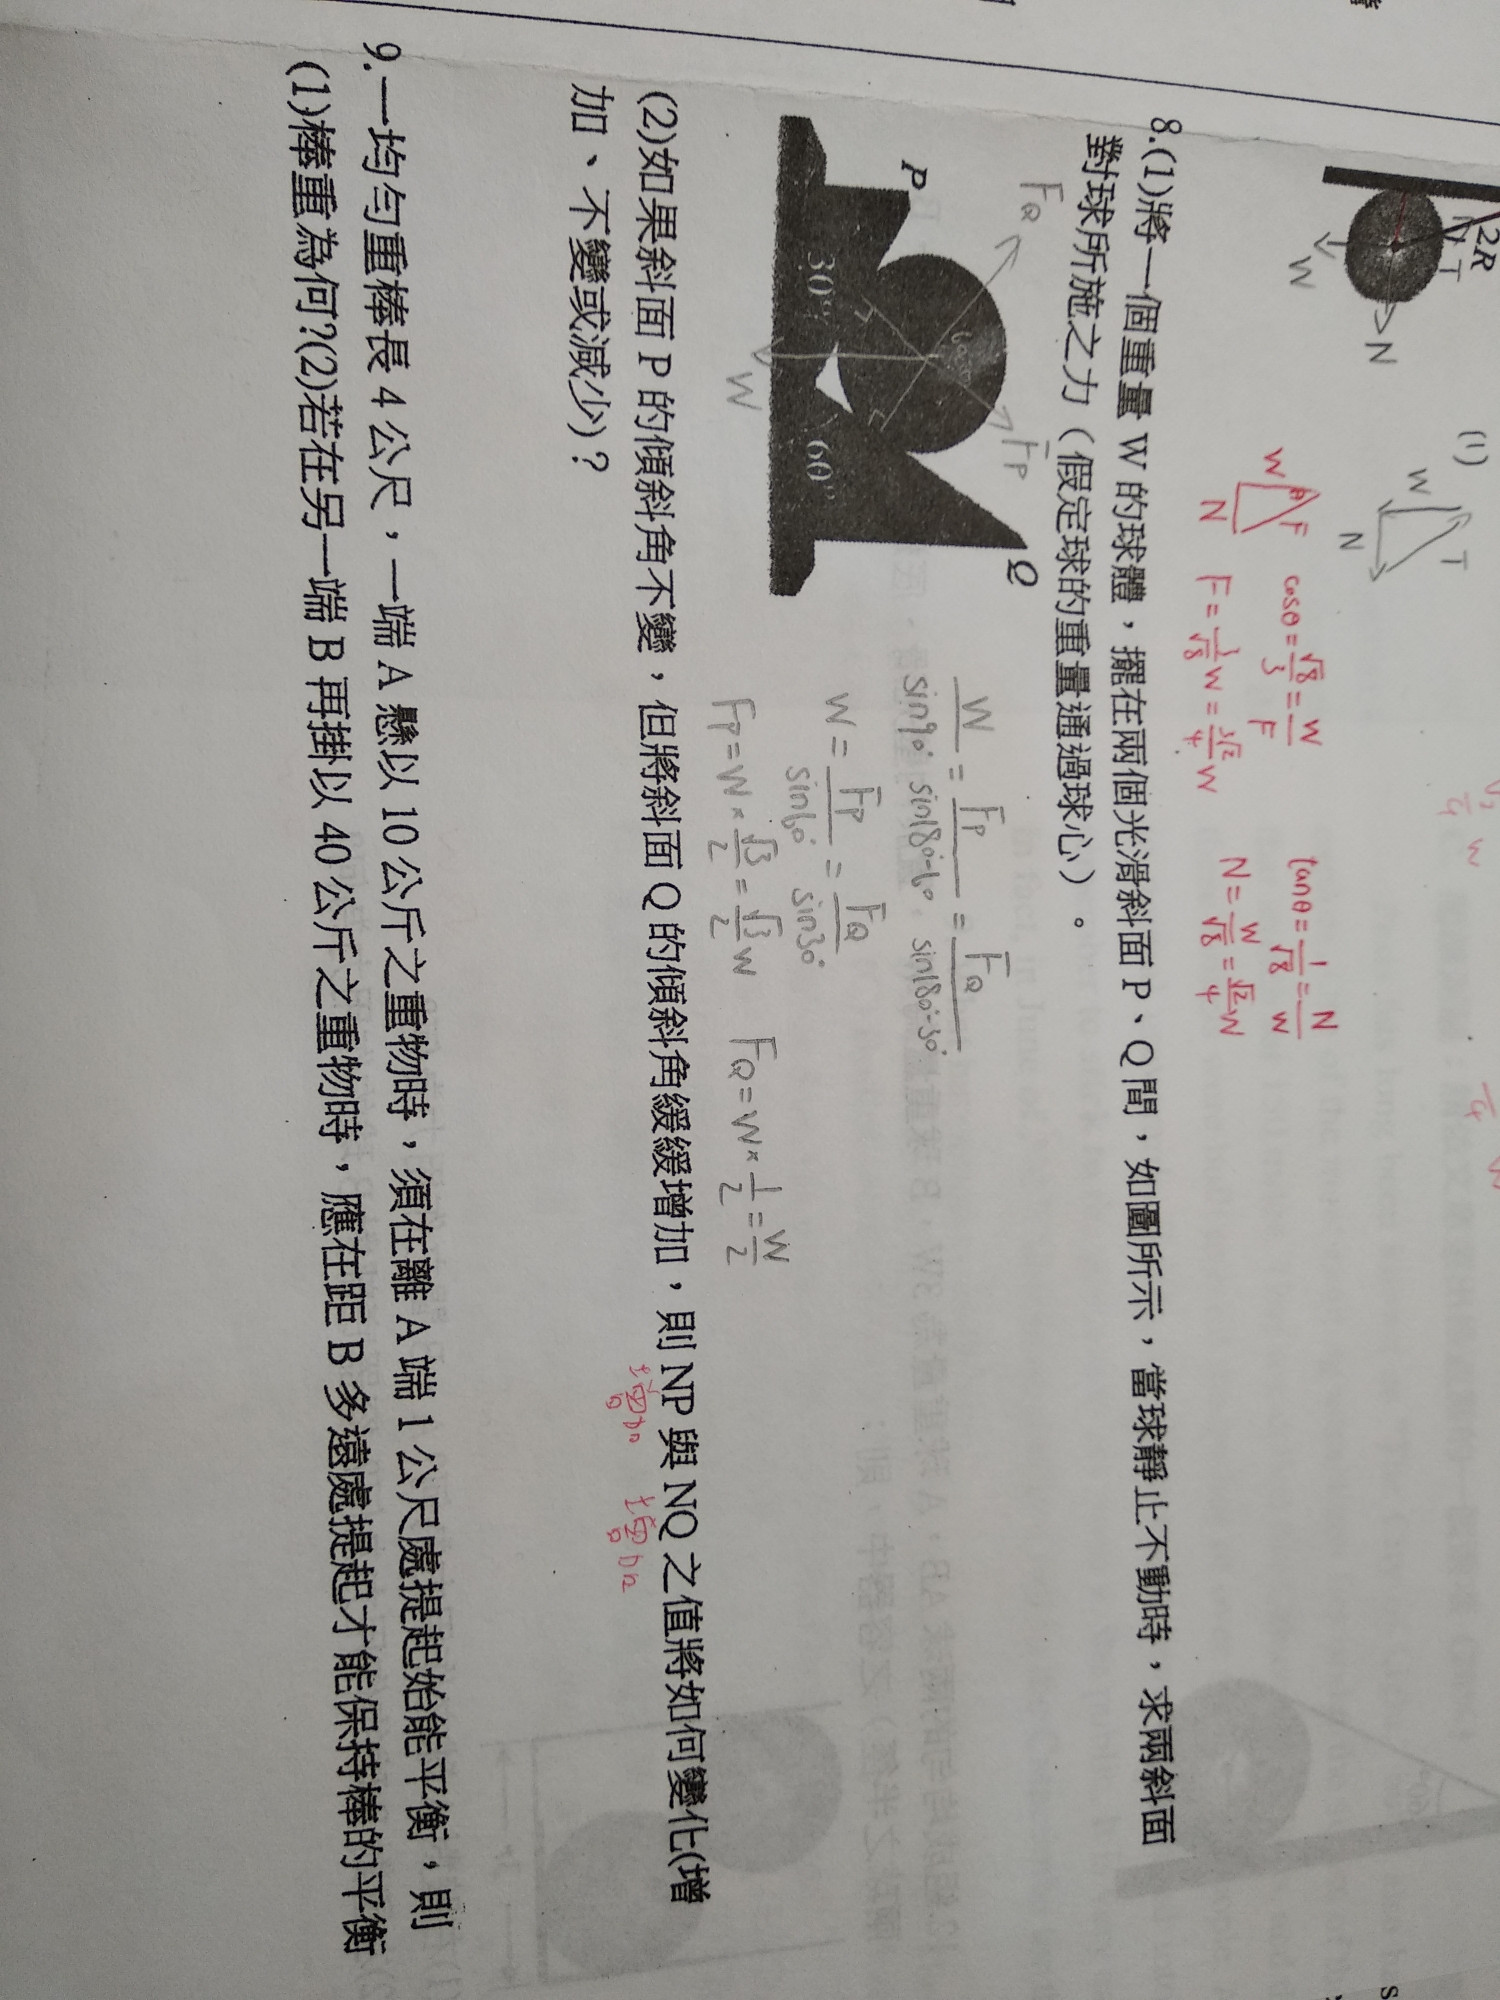 2R
T
W
N
(1)
W
T
N
W θ F
N
cosθ = √8/3 = W/F
F = 3/√8 W = 3√2/4 W
tanθ = 1/√8 = N/W
N = W/√8 = √2/4 W
8.(1)將一個重量 W 的球體，擺在兩個光滑斜面 P、Q 間，如圖所示，當球靜止不動時，求兩斜面
對球所施之力（假定球的重量通過球心）。
FQ
FP
P
Q
30°
60°
W
W/sin90° = FP/sin180°-60° = FQ/sin180°-30°
W = FP/sin60° = FQ/sin30°
FP = W × √3/2 = √3/2 W FQ = W × 1/2 = W/2
(2)如果斜面 P 的傾斜角不變，但將斜面 Q 的傾斜角緩緩增加，則 NP 與 NQ 之值將如何變化(增
增加 增加
加、不變或減少)？
9.一均勻重棒長 4 公尺，一端 A 懸以 10 公斤之重物時，須在離 A 端 1 公尺處提起始能平衡，則
(1)棒重為何?(2)若在另一端 B 再掛以 40 公斤之重物時，應在距 B 多遠處提起才能保持棒的平衡